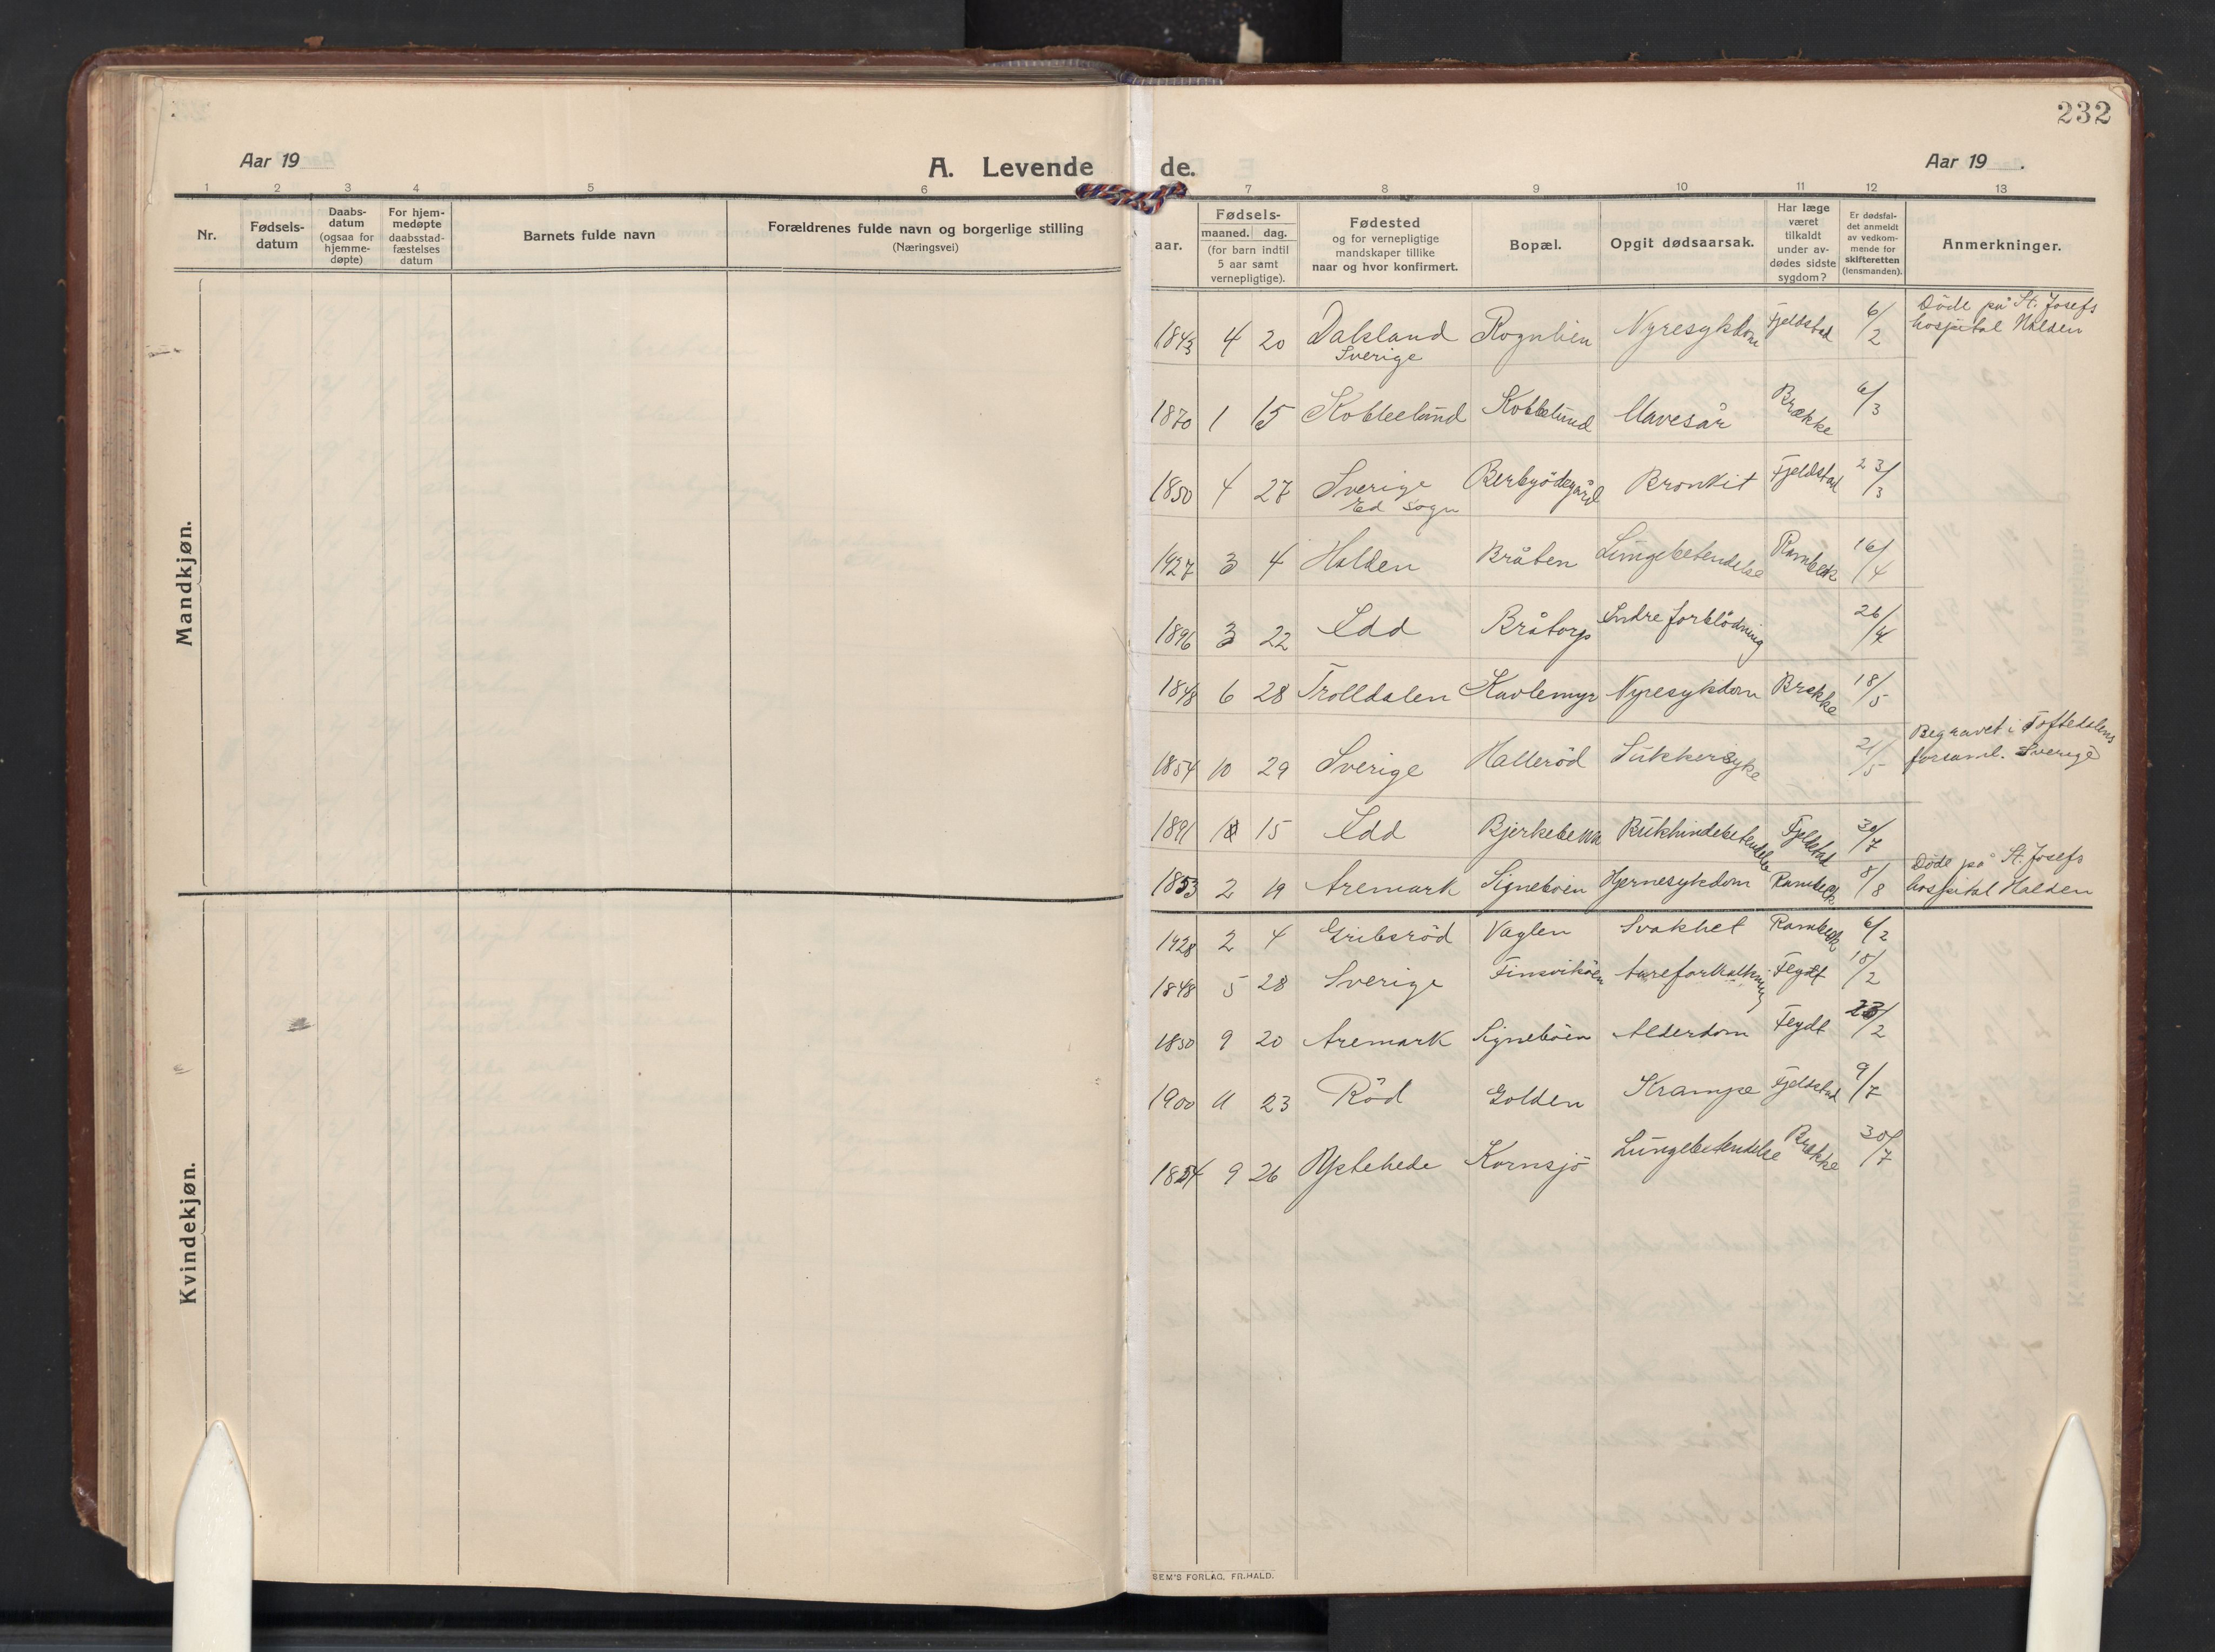 232
Aar 19
A. Levende
de.
Aar 19 .
1 2 3 4 5 6
7 8 9 10 11 12 13
Nr.
Fødsels-
datum
Daabs-
datum
(ogsaa for
hjemme-
døpte)
For hjem-
medøpte
daabsstad-
fæstelses
datum
Barnets fulde navn
Forældrenes fulde navn og borgerlige stilling
(Næringsvei)
aar.
Fødsels-
maaned. dag.
(for barn indtil
5 aar samt
vernepligtige).
Fødested
og for vernepligtige
mandskaper tillike
naar og hvor konfirmert.
Bopæl.
Opgit dødsaarsak.
Har læge
været
tilkaldt
under av-
dødes sidste
sygdom?
Er dødsfal-
det anmeldt
av vedkom-
mende for
skifteretten
(lensmanden).
Anmerkninger.
Mandkjøn.
1843 4 20 Dalsland Sverige Rognlien Nyresykdom Fjeldstad 6/2 Döde på St. Josefs
hospital Halden
1870 1 15 Kobbelund Kobbelund Mavesår Brække 6/3
1850 4 27 Sverige Ed sogn Berbyödegård Bronkit Fjeldstad 23/3
1927 3 4 Halden Bråten Lungebetendelse Rambeck 16/4
1896 3 22 Idd Bråtorp Indre forblödning 26/4
1848 6 28 Trolldalen Kavlemyr Nyresykdom Brække 18/5
1854 10 29 Sverige Halleröd Sukkersyke 21/5 Begravet i Töftedalens
forsaml. Sverige
1891 15 Idd Bjerkebekk Bukhindebetendelse Fjeldstad 30/7
1853 2 19 Aremark Signeböen Hjernesykdom Rambeck 8/8 Döde på St. Josefs
hospital Halden
Kvindekjøn.
1928 2 4 Gribsröd Vaglen Svakhet Rambeck 6/2
1848 5 28 Sverige Finsviköen Åreforkalkning Feydt 18/2
1850 9 20 Aremark Signeböen Alderdom Feydt 23/2
1900 11 23 Röd Holden Krampe Fjeldstad 9/7
1854 9 26 Ystehede Kornsjö Lungebetendelse Brække 30/7
SEM'S FORLAG, FR.HALD.